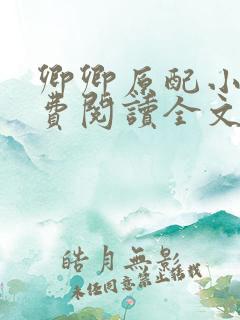 卿卿原配小
費閱讀全文
皓月無影
未经同意禁止转载